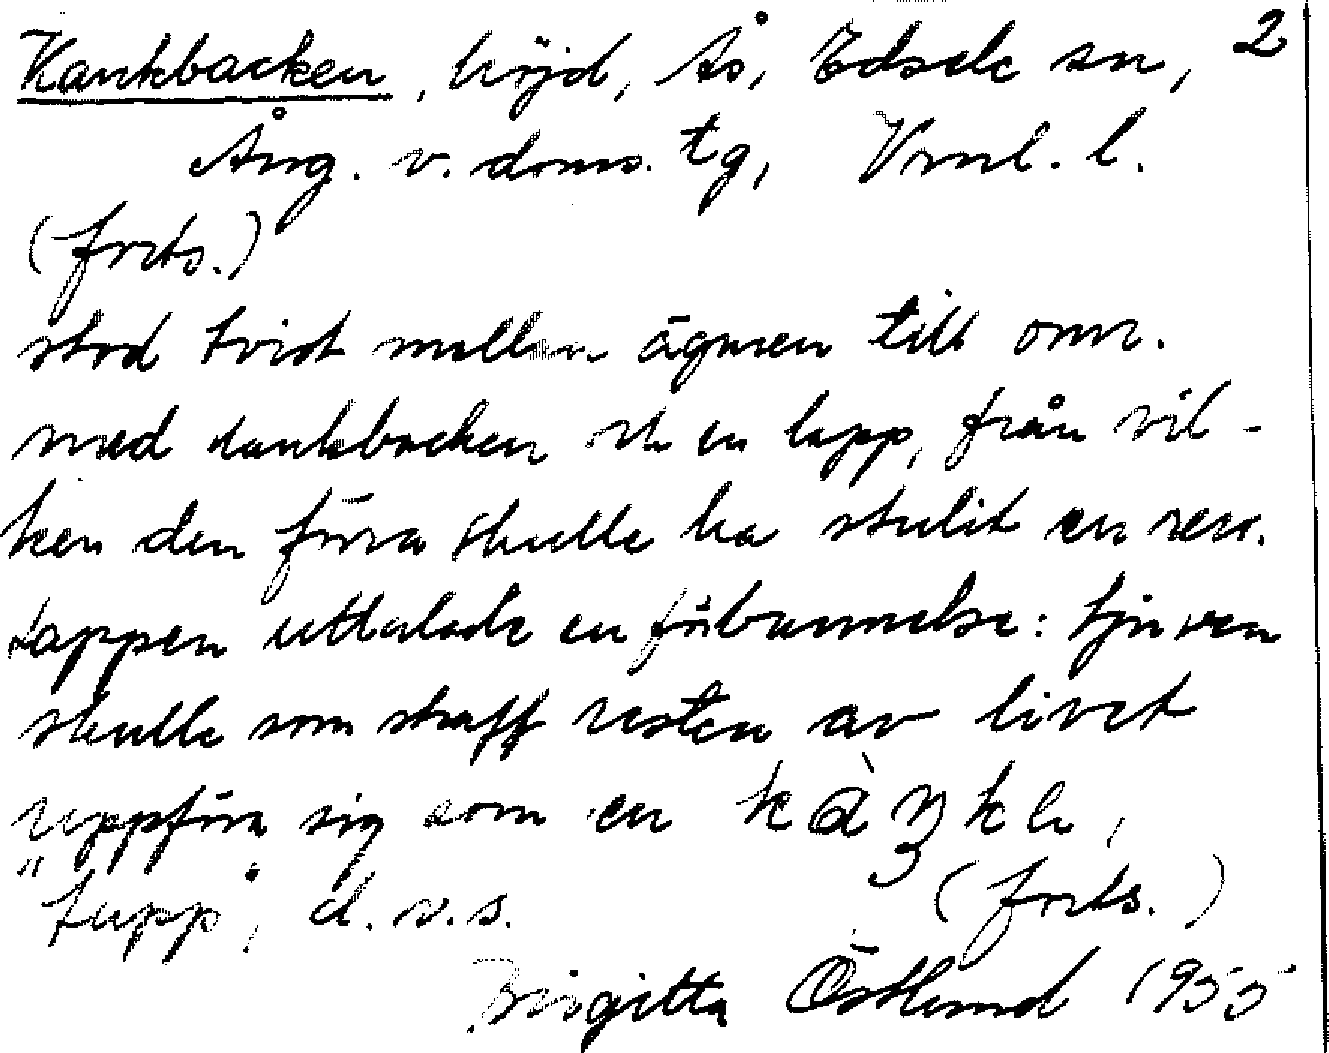 Kankbacken, höjd, Ås, Edsele sn, 2
Ång. v. doms. tg, Vrml. l.
(forts.)
stod tvist mellan ägaren till omr.
med Kankbacken och en lapp, från vil-
ken den förra skulle ha stulit en ren.
Lappen uttalade en förbannelse: tjuven
skulle som straff resten av livet
uppföra sig som en
"tupp", d.v.s. (forts.)
Birgitta Östlund 1955